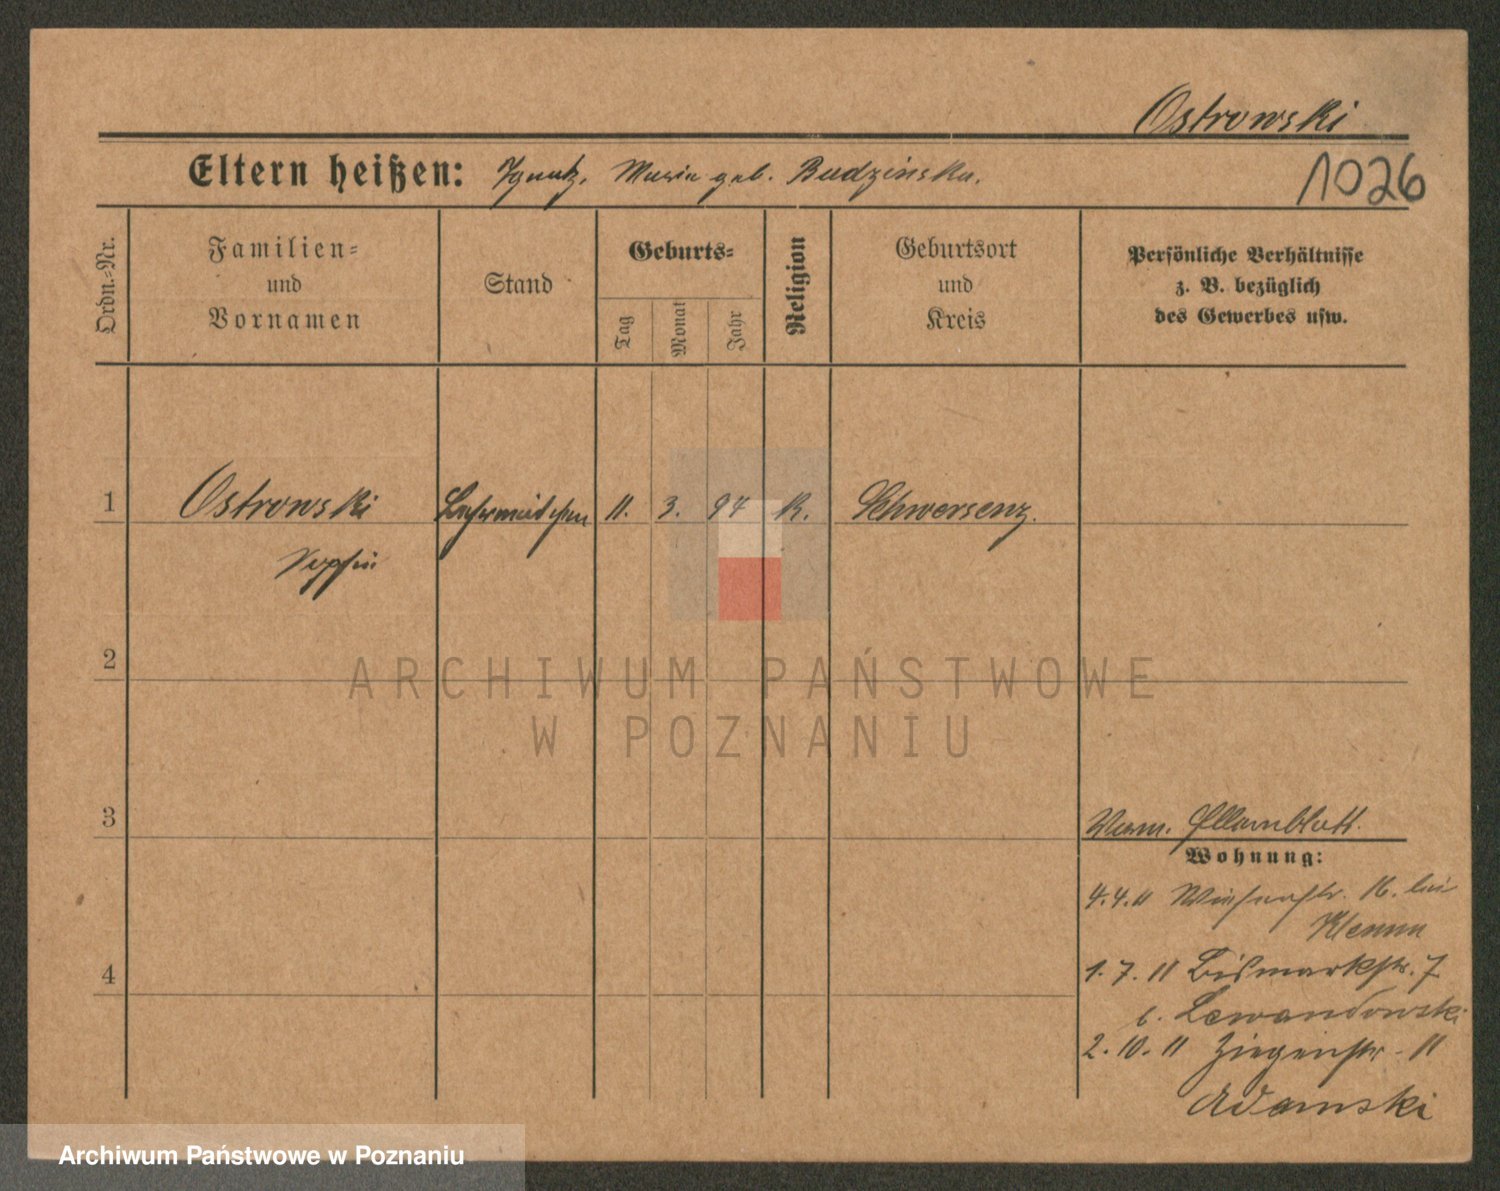 Ostrowski
Eltern heißen: Ignatz, Maria geb. Budzinska.
1026
Ordn.=Nr.
Familien=
und
Vornamen
Stand
Geburts=
Tag
Monat
Jahr
Religion
Geburtsort
und
Kreis
Persönliche Verhältnisse
z. B. bezüglich
des Gewerbes usw.
1
Ostrowski
Sophie
Lehrmädchen
11.
3.
94
K.
Schwersenz.
2
ARCHIWUM PAŃSTWOWE
W POZNANIU
3
Wohnung:
4.4.11 16. bei
1.7.11 Bismarkstr. 7
b. Lewandowski
4
2.10.11 Ziegenstr. 11
Adamski
Archiwum Państwowe w Poznaniu